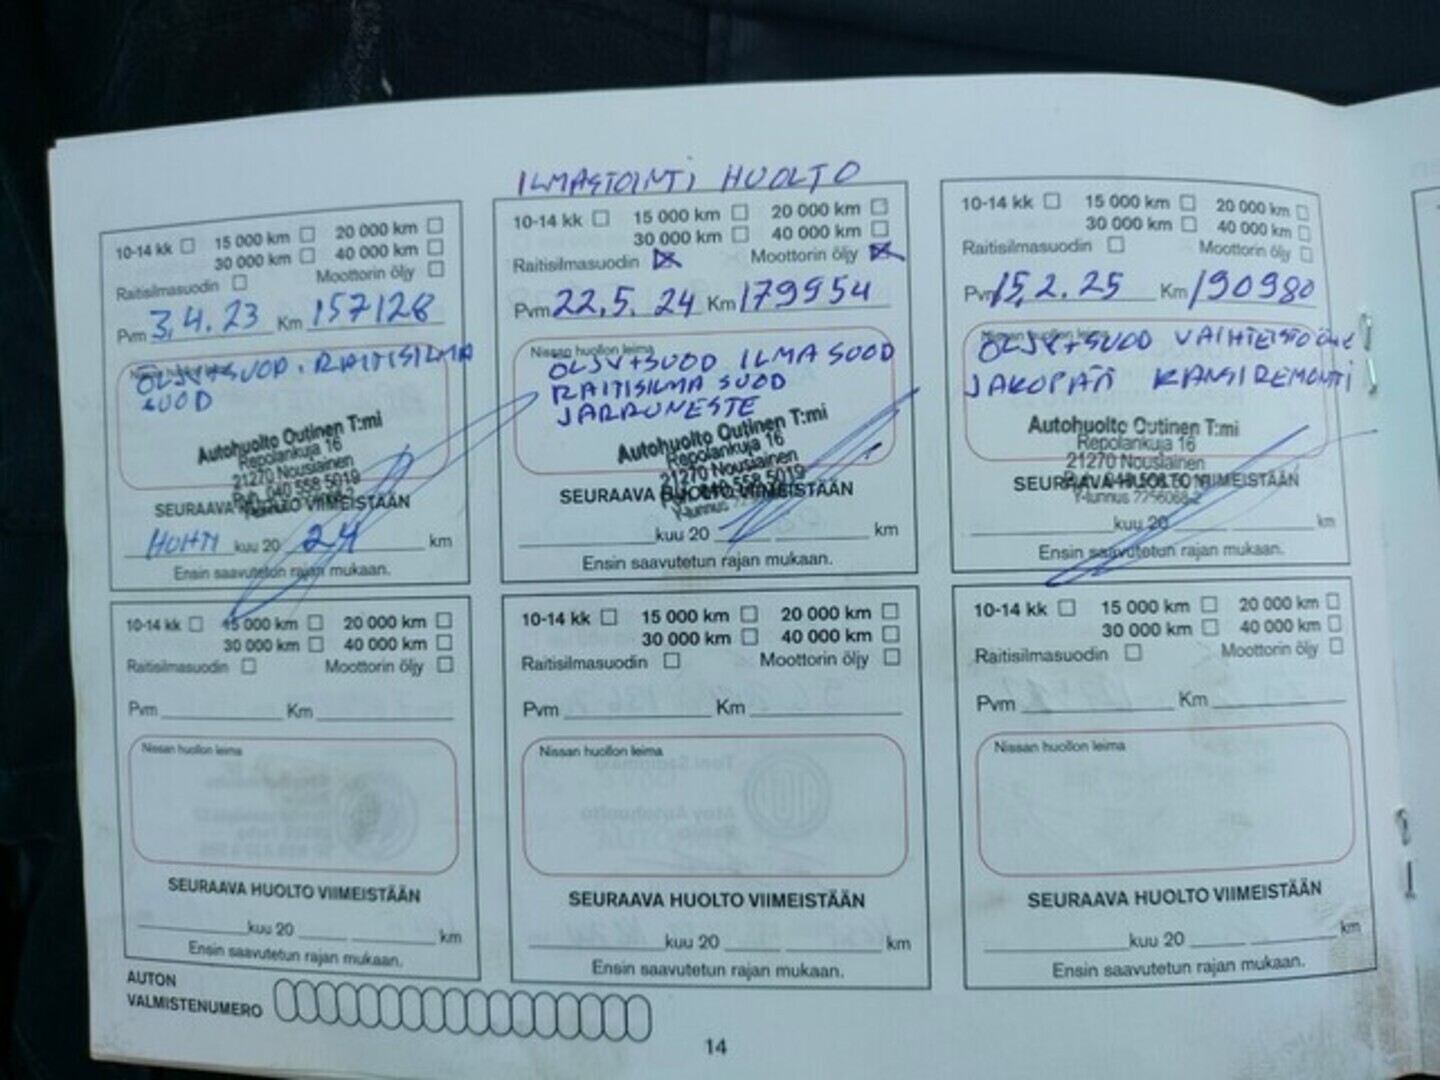 ILMASTOINTI HUOLTO
10-14 kk 15 000 km 20 000 km
30 000 km 40 000 km
Raitisilmasuodin Moottorin öljy
Pvm 3.4.23 Km 157128
ÖLJY+SUOD. RAITISILMA
SUOD
Autohuolto Outinen T:mi
Repolankuja 16
21270 Nousiainen
Puh. 040 558 5019
SEURAAVA HUOLTO VIIMEISTÄÄN
HUHTI kuu 20 24 km
Ensin saavutetun rajan mukaan.
10-14 kk 15 000 km 20 000 km
30 000 km 40 000 km
Raitisilmasuodin Moottorin öljy
Pvm 22.5.24 Km 179954
Nissan huollon leima
ÖLJY+SUOD ILMA SUOD
RAITISILMA SUOD
JARRUNESTE
Autohuolto Outinen T:mi
Repolankuja 16
21270 Nousiainen
040 558 5019
SEURAAVA HUOLTO VIIMEISTÄÄN
Y-tunnus
kuu 20 km
Ensin saavutetun rajan mukaan.
10-14 kk 15 000 km 20 000 km
30 000 km 40 000 km
Raitisilmasuodin Moottorin öljy
Pvm 15.2.25 Km 190980
Nissan huollon leima
ÖLJY+SUOD VAIHTEISTOÖLJ
JAKOPÄÄ KANSIREMONTI
Autohuolto Outinen T:mi
Repolankuja 16
21270 Nousiainen
SEURAAVA HUOLTO VIIMEISTÄÄN
Y-tunnus
kuu 20 km
Ensin saavutetun rajan mukaan.
10-14 kk 15 000 km 20 000 km
30 000 km 40 000 km
Raitisilmasuodin Moottorin öljy
Pvm Km
Nissan huollon leima
SEURAAVA HUOLTO VIIMEISTÄÄN
kuu 20 km
Ensin saavutetun rajan mukaan.
10-14 kk 15 000 km 20 000 km
30 000 km 40 000 km
Raitisilmasuodin Moottorin öljy
Pvm Km
Nissan huollon leima
SEURAAVA HUOLTO VIIMEISTÄÄN
kuu 20 km
Ensin saavutetun rajan mukaan.
10-14 kk 15 000 km 20 000 km
30 000 km 40 000 km
Raitisilmasuodin Moottorin öljy
Pvm Km
Nissan huollon leima
SEURAAVA HUOLTO VIIMEISTÄÄN
kuu 20 km
Ensin saavutetun rajan mukaan.
AUTON
VALMISTENUMERO
14